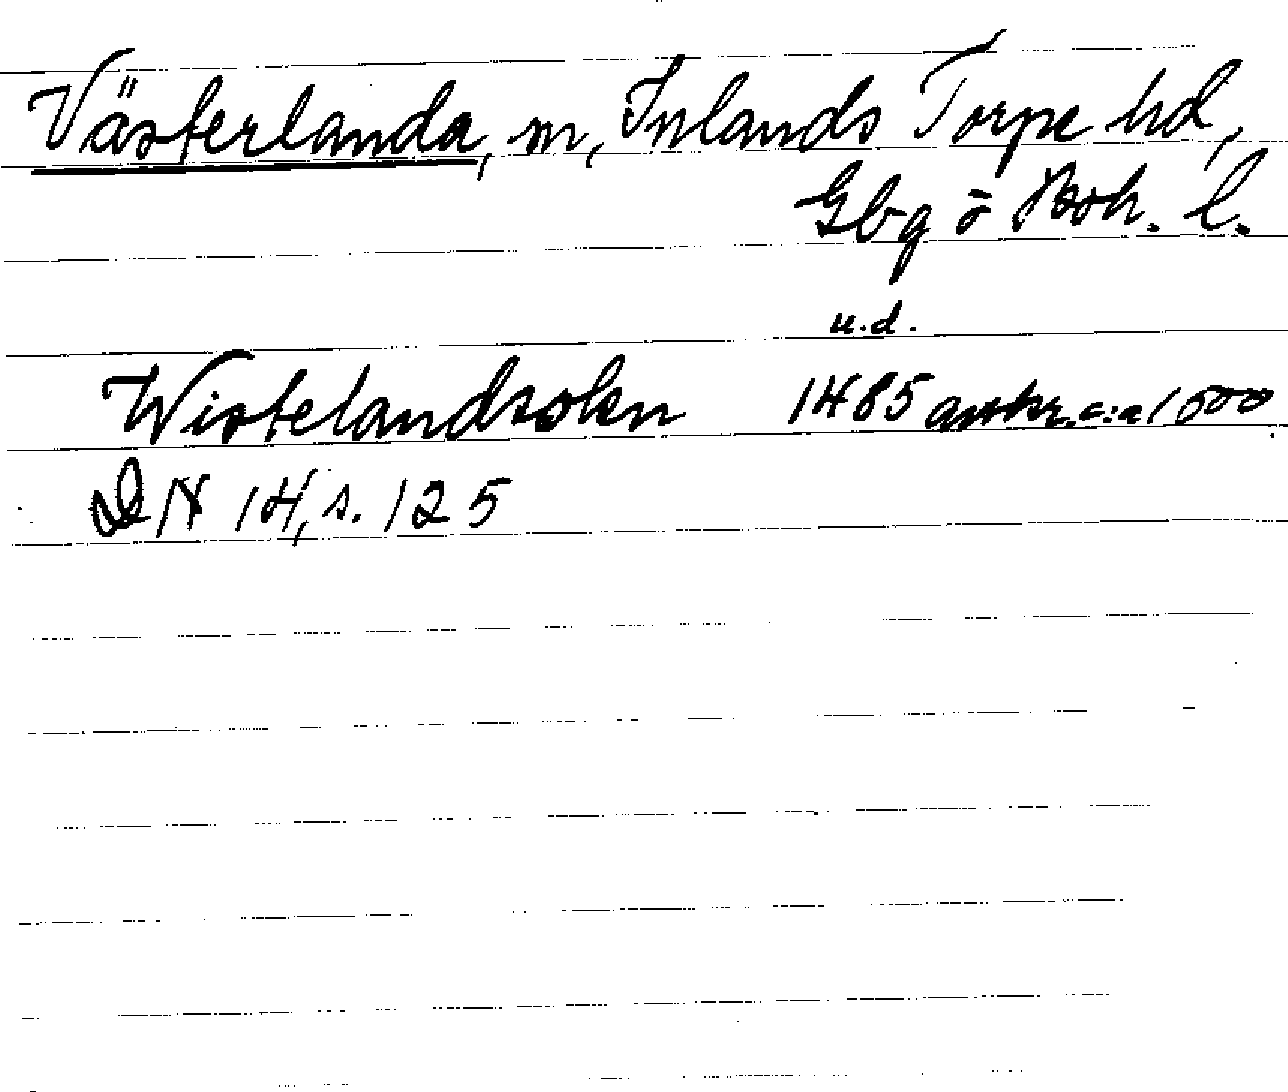 Västerlanda, sn, Inlands Torpe hd,
Gbg o Boh. l.
u.d.
Wistelandsokn 1485 avskr. c:a 1500
DN 14, s. 125